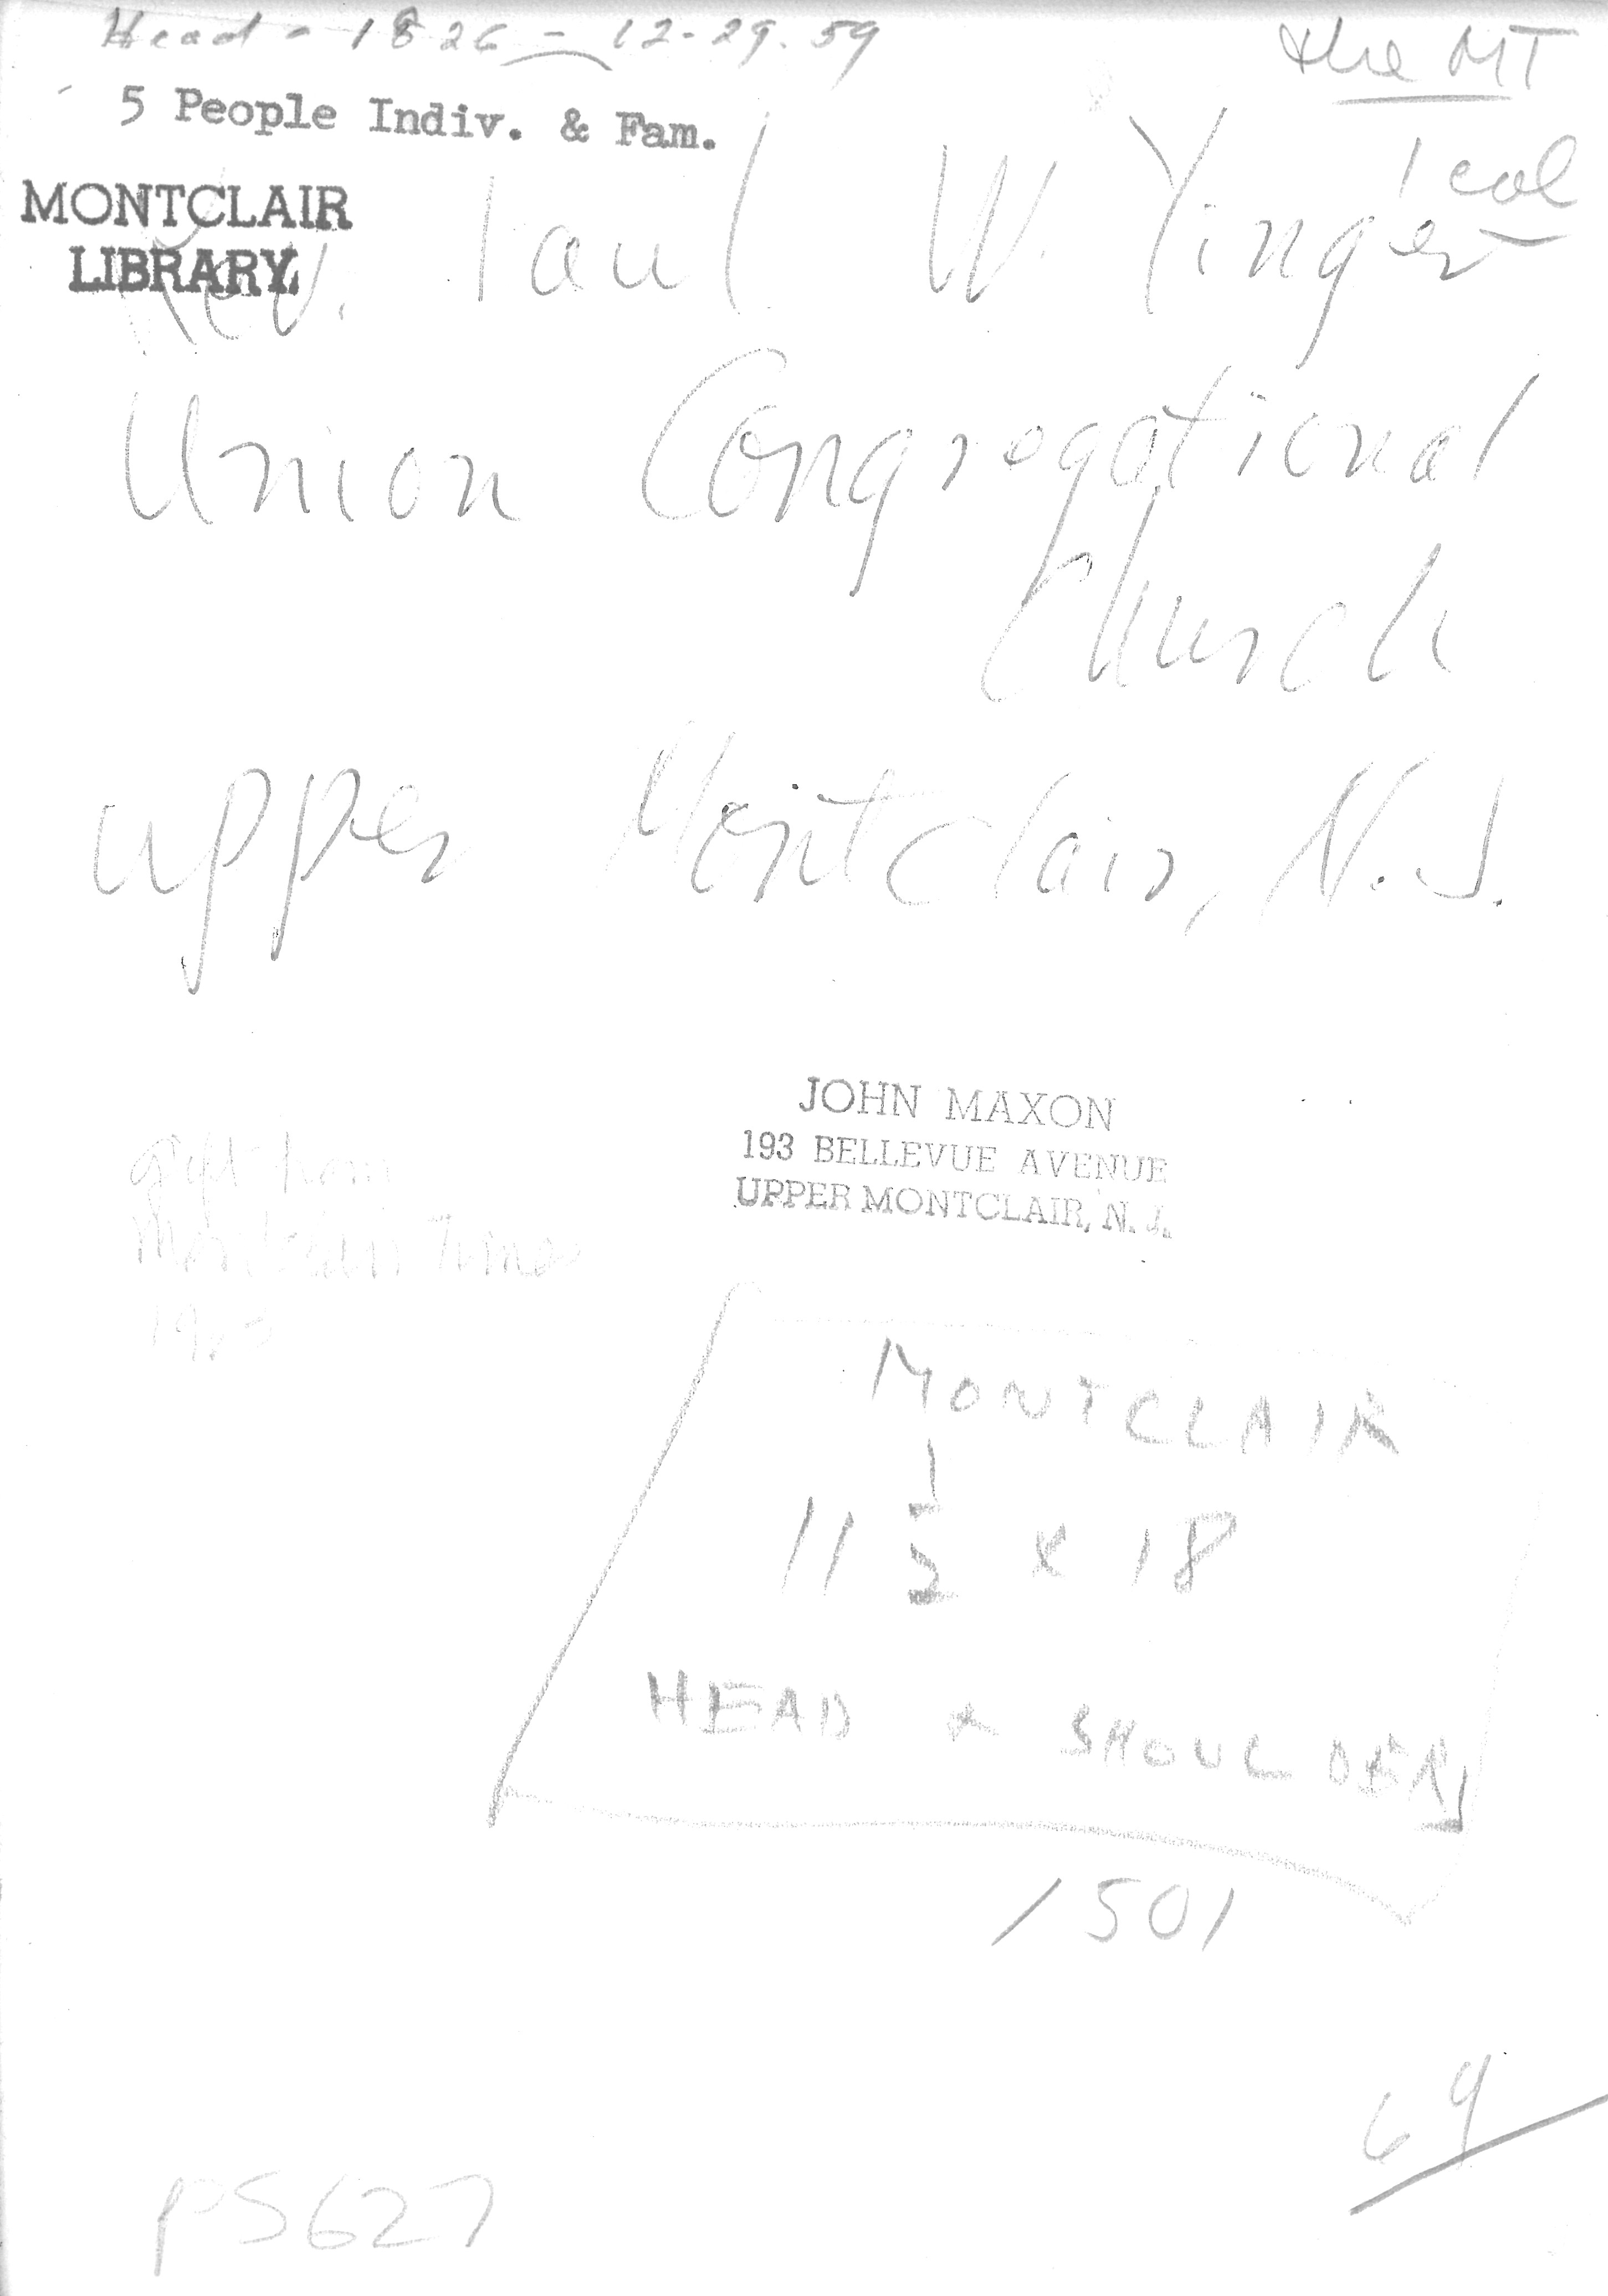 Head - 1826 - 12-29-59
the MT
5 People Indiv. & Fam.
1 col
MONTCLAIR
LIBRARY
Rev. Paul W. Yinger
Union Congregational
Church
upper Montclair, N.J.
JOHN MAXON
193 BELLEVUE AVENUE
UPPER MONTCLAIR, N. J.
Gift from
Montclair Times
MONTCLAIR
11 1/2 x 18
HEAD + SHOULDERS
1501
69
PS627